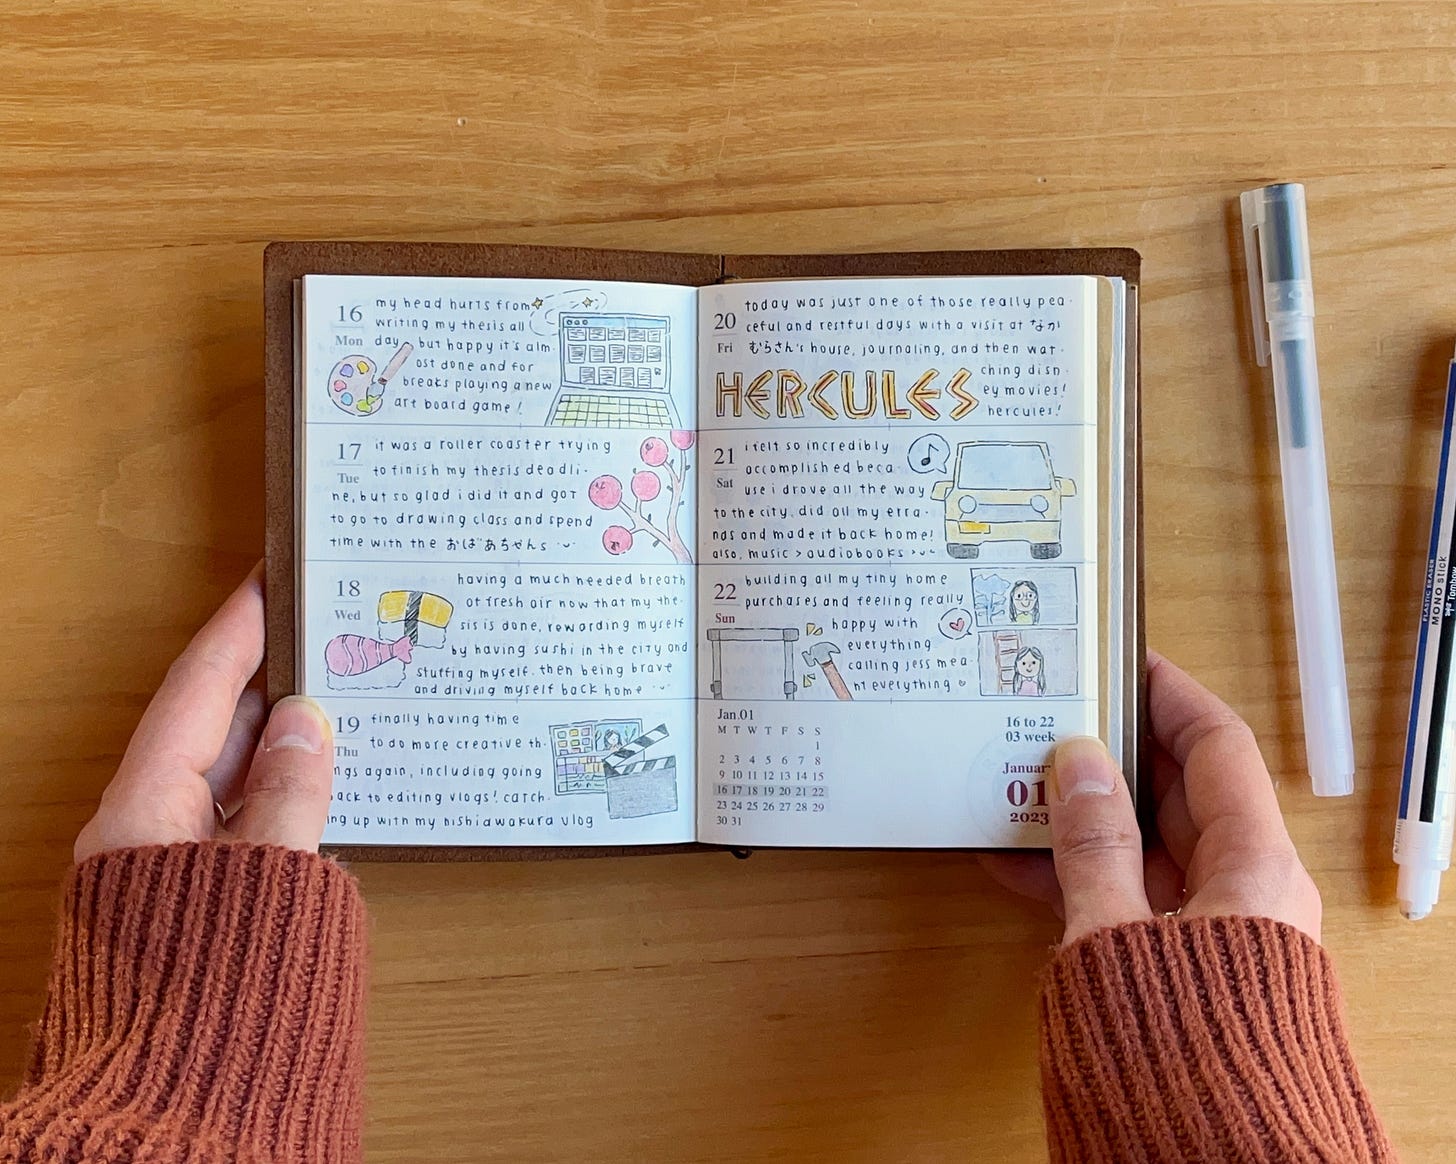 16
Mon
my head hurts from
writing my thesis all
day, but happy it's alm-
ost done and for
breaks playing a new
art board game!
17
Tue
it was a roller coaster trying
to finish my thesis deadli-
ne, but so glad i did it and got
to go to drawing class and spend
time with the おばあちゃんs
18
Wed
having a much needed breath
of fresh air now that my the-
sis is done, rewarding myself
by having sushi in the city and
stuffing myself. then being brave
and driving myself back home
19
Thu
finally having time
to do more creative th-
ngs again, including going
ack to editing vlogs! catch-
ng up with my nishiawakura vlog
20
Fri
today was just one of those really pea-
ceful and restful days with a visit at なか
むらさん's house, journaling, and then wat-
ching disn-
ey movies!
hercules!
HERCULES
21
Sat
i felt so incredibly
accomplished beca-
use i drove all the way
to the city, did all my erra-
nds and made it back home!
also, music > audiobooks
22
Sun
building all my tiny home
purchases and feeling really
happy with
everything
calling jess mea-
nt everything
Jan.01
M T W T F S S
1
2 3 4 5 6 7 8
9 10 11 12 13 14 15
16 17 18 19 20 21 22
23 24 25 26 27 28 29
30 31
16 to 22
03 week
January
01
2023
PLASTIC ERASER
MONO stick
Tombow